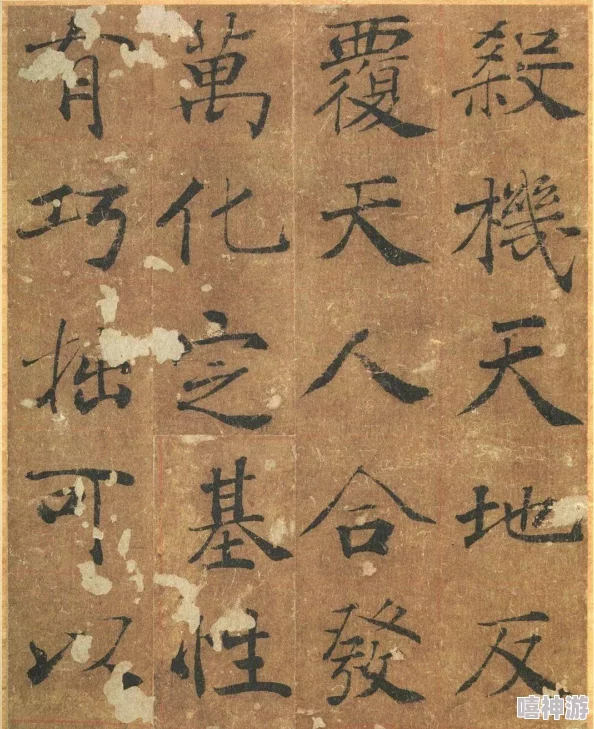 殺機天地反
覆天人合發
萬化定基性
有巧拙可以
嘻神游